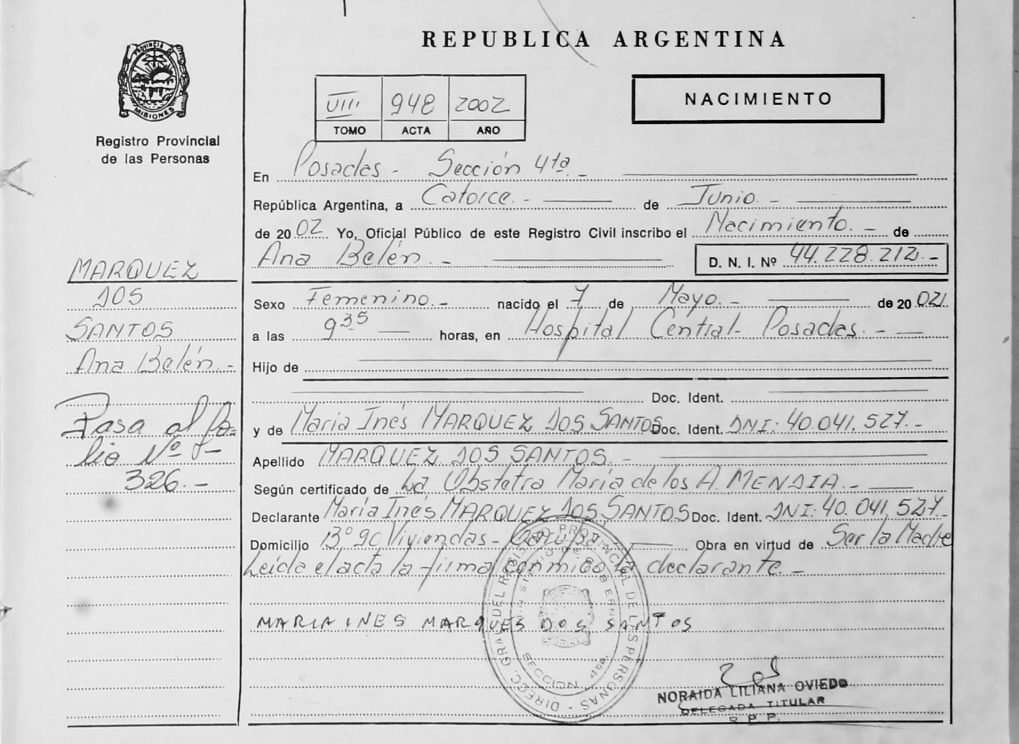 REPUBLICA ARGENTINA
PROVINCIA DE MISIONES
Registro Provincial
de las Personas
VIII 948 2002
TOMO ACTA AÑO
NACIMIENTO
En Posadas - Sección 4ta. -
República Argentina, a Catorce. - de Junio -
de 2002 Yo, Oficial Público de este Registro Civil inscribo el Nacimiento. - de
Ana Belén. - D. N. I. Nº 44.228.212. -
MARQUEZ
DOS
SANTOS
Ana Belén. -
Pasa al fo-
lio Nº
326. -
Sexo Femenino. - nacido el 7 de Mayo. - de 20021
a las 935 horas, en Hospital Central - Posadas. -
Hijo de
Doc. Ident.
y de Maria Inés MARQUEZ DOS SANTOS Doc. Ident. DNI: 40.041.527. -
Apellido MARQUEZ DOS SANTOS. -
Según certificado de La Obstetra Maria de los A. MENDIA. -
Declarante Maria Inés MARQUEZ DOS SANTOS Doc. Ident. DNI: 40.041.527 -
Domicilio 13º 90 Viviendas - Obra en virtud de Ser la Madre
Leida el acta la firma conmigo la declarante. -
MARIA INES MARQUES DOS SANTOS
DIRECC. GRAL. DEL REGISTRO PROVINCIAL DE LAS PERSONAS
SECCION 4ta.
NORAIDA LILIANA OVIEDO
DELEGADA TITULAR
R.P.P.